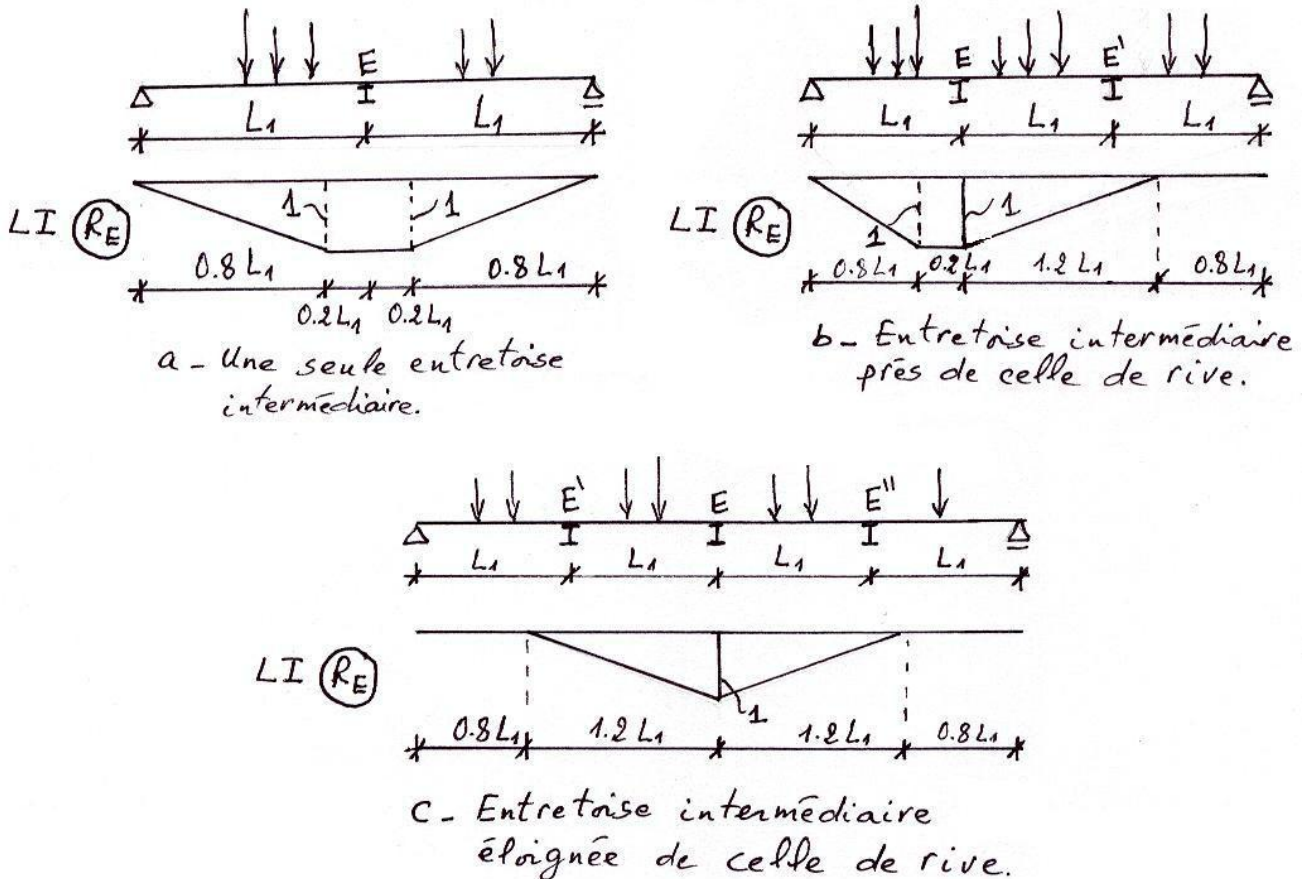 E
L1 L1
LI RE
1 1
0.8 L1 0.8 L1
0.2 L1 0.2 L1
a - Une seule entretoise
intermédiaire.
E E'
L1 L1 L1
LI RE
1 1
0.8 L1 0.2 L1 1.2 L1 0.8 L1
b - Entretoise intermédiaire
prés de celle de rive.
E' E E"
L1 L1 L1 L1
LI RE
1
0.8 L1 1.2 L1 1.2 L1 0.8 L1
c - Entretoise intermédiaire
éloignée de celle de rive.